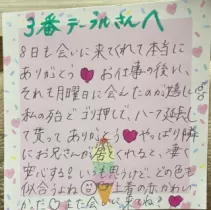 3番テーブルさんへ
8日も会いに来てくれて本当に
ありがとう お仕事の後い、
それも月曜日に会えたのが嬉しい
私の卓でゴリ押しで、ハーフ延長し
て貰ってありがとう やっぱり隣
にお兄さんが居てくれると、凄く
安心する! いつも思うけど、どの色も
似合うよね 上着の赤かわい
かった また会いに来てね?